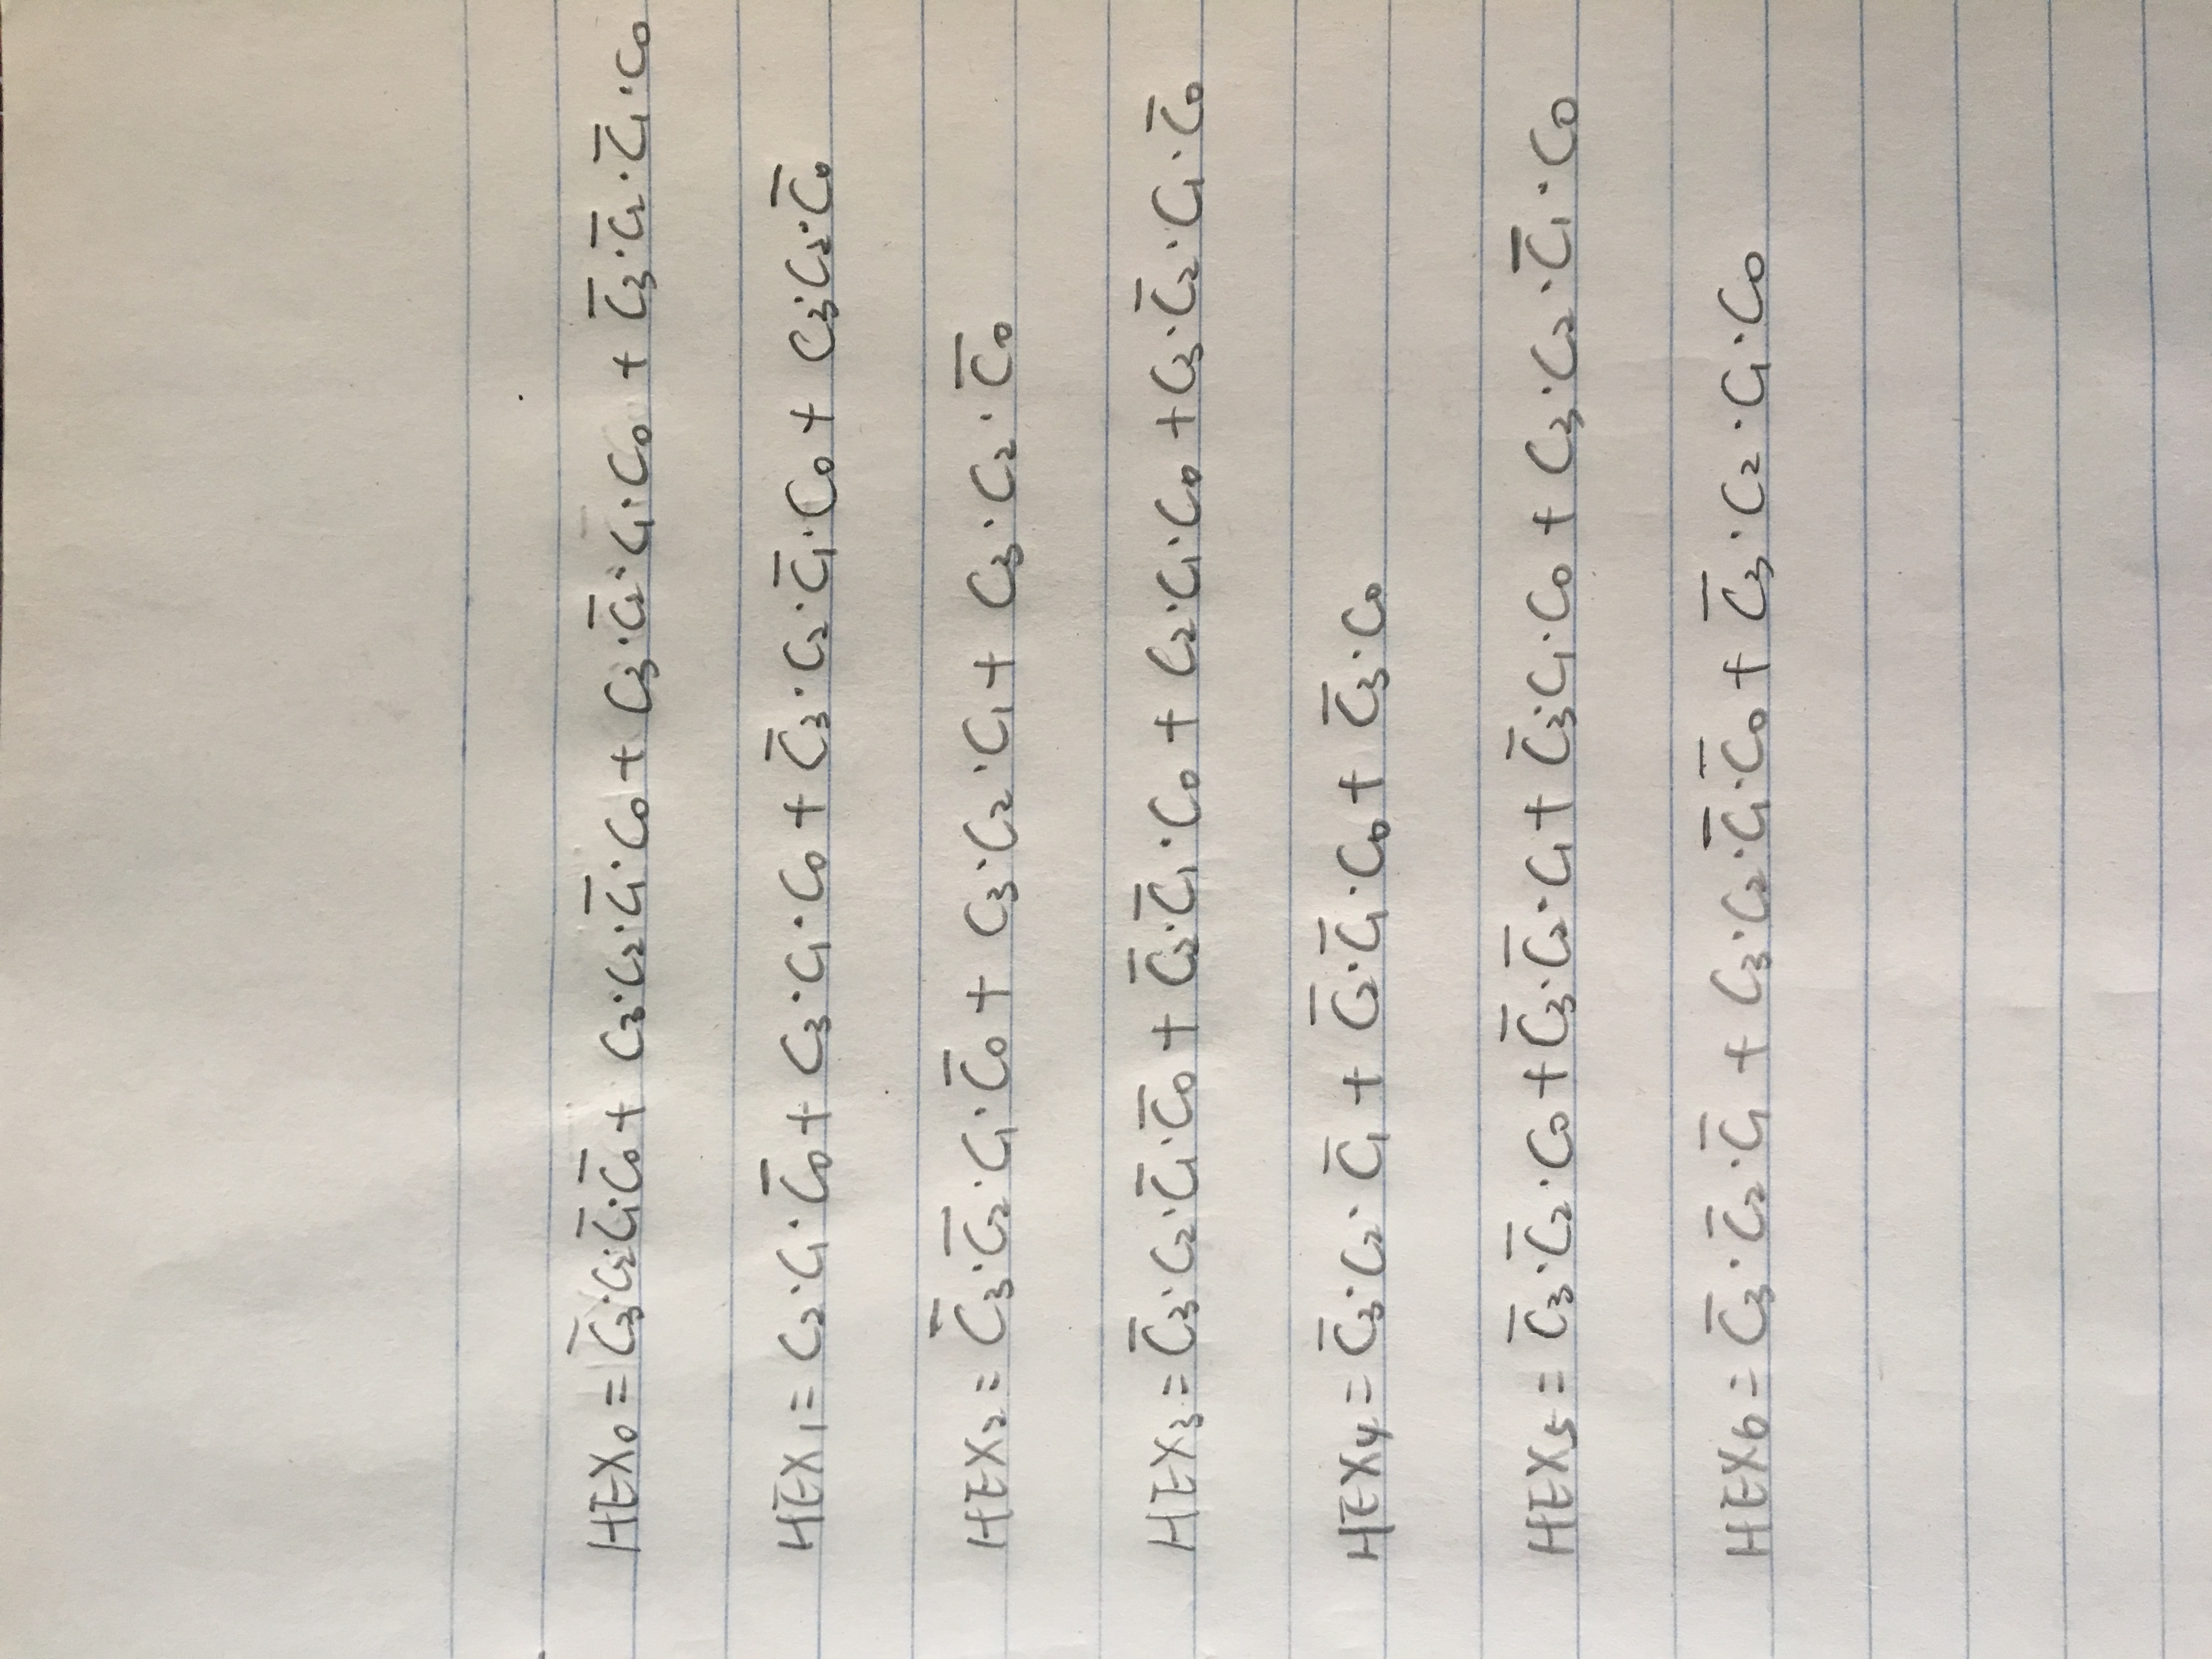 HEX₀ = C̅₃·C₂·C̅₁·C̅₀ + C₃·C₂·C̅₁·C₀ + C₃·C̅₂·C₁·C₀ + C̅₃·C̅₂·C̅₁·C₀
HEX₁ = C₂·C₁·C̅₀ + C₃·C₁·C₀ + C̅₃·C₂·C̅₁·C₀ + C₃·C₂·C̅₀
HEX₂ = C̅₃·C̅₂·C₁·C̅₀ + C₃·C₂·C₁ + C₃·C₂·C̅₀
HEX₃ = C̅₃·C₂·C̅₁·C̅₀ + C̅₂·C̅₁·C₀ + C₂·C₁·C₀ + C₃·C̅₂·C₁·C̅₀
HEX₄ = C̅₃·C₂·C̅₁ + C̅₂·C̅₁·C₀ + C̅₃·C₀
HEX₅ = C̅₃·C̅₂·C₀ + C̅₃·C̅₂·C₁ + C̅₃·C₁·C₀ + C₃·C₂·C̅₁·C₀
HEX₆ = C̅₃·C̅₂·C̅₁ + C₃·C₂·C̅₁·C̅₀ + C̅₃·C₂·C₁·C₀